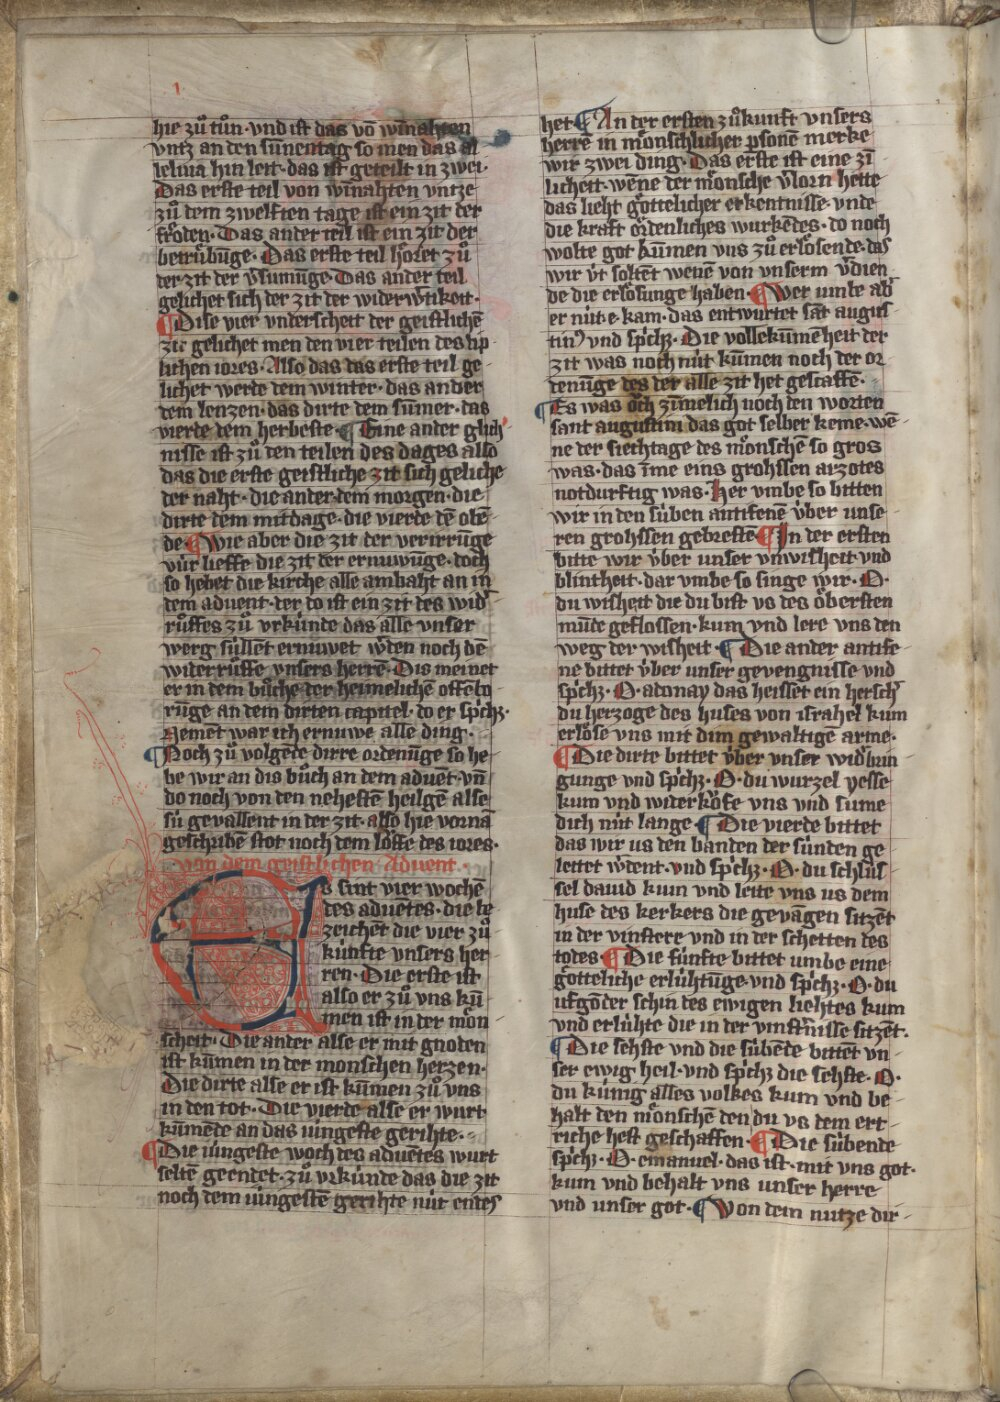 hie zuͦ tuͦn · vnd ist das vō wīnahten
vntz an den sūnentag so men das al
leluia hin leit · das ist geteilt in zwei ·
Das erste teil von wīnahten vntze
zuͦ dem zwelften tage ist ein zit der
froͤden · Das ander teil ist ein zit der
betruͤbūnge · Das erste teil hoͤret zuͦ
der zit der v̓sumūnge · Das ander teil
gelichet sich der zit der widerw̓tikeit ·
¶ Dise vier vnderscheit der geistlichē
zit gelichet men den vier teilen des lip
lichen iores · Also das das erste teil ge-
lichet werde dem winter · das ander
dem lenzen · das dirte dem sūmer · das
vierde dem herbeste · ¶ Eine ander glich
nisse ist zuͦ den teilen des dages also
das die erste geistliche zit sich geliche
der naht · die ander dem morgen · die
dirte dem mitdage · die vierde dē obē-
de · ¶ Wie aber die zit der verirrūge
vúr lieffe die zit der ernuwūge · doch
so hebet die kirche alle ambaht an in
dem aduent · der do ist ein zit des wid̓
ruͤffes zuͦ vrkúnde das alle vnser
werg súllēt ernuwet w̓den noch dē
widerruͤffe vnsers herrē · Dis meinet
er in dem buͦche der heimelichē offeba
rūge an dem dirten capitel · do er sp̓chz ·
Nemēt war ich ernuwe alle ding ·
¶ Noch zuͦ volgēde dirre ordenūge so he-
be wir an dis buͦch an dem aduēt · vn̄
do noch von den nehestē heilgē alse
sú gevallent in der zit · also hie vornā
geschribē stot noch dem loͤffe des iores ·
· van dem geistlichen Aduent ·
Es sint vier wochē
des aduētes · die be
zeichēt die vier zuͦ
kúnfte vnsers her
ren · Die erste ist
also er zuͦ vns kū
men ist in der moͤn
scheit · Die ander alse er mit gnoden
ist kūmen in der monschen herzen ·
Die dirte alse er ist kūmen zuͦ vns
in den tot · Die vierde alse er wurt
kūmēde an das iúngeste gerihte ·
¶ Die iúngeste woch des aduētes wurt
seltē geendet · zuͦ vrkúnde das die zit
noch dem iúngestē gerihte nút endes
het · ¶ An der ersten zuͦkunft vnsers
herrē in moͤnschlicher psonē merke
wir zwei ding · Das erste ist eine zi
licheit · wēne der moͤnsche v̓lorn hette
das lieht goͤttelicher erkentnisse · vnde
die kraft oͤrdenliches wurkēdes · do noch
wolte got kūmen vns zuͦ erloͤsende · das
wir út soltēt wenē von vnserm v̓dien
de die erloͤsunge haben · ¶ Wer umbe ab̓
er nút · e · kam · das entwurtet sāt augus
tin⁹ vnd sp̓chz · Die vollekūmēheit der
zit was noch nút kūmen noch der or
denūge des der alle zit het gescaffē ·
¶ Es was oͤch zīmelich noch den worten
sant augustini das got selber keme · wē
ne der siechtage des moͤnschē so gros
was · das īme eins grohssen arzotes
notdurftig was · Her vmbe so bitten
wir in den súben antifenē v́ber unse
ren grohssen gebrestē ¶ In der ersten
bitte wir v́ber unser vnwisheit vnd
blintheit · dar vmbe so singe wir · O ·
du wisheit die du bist vs des oͤbersten
mūde geflossen · kum vnd lere vns den
weg der wisheit · ¶ Die ander antife
ne bittet v́ber unser gevengnisse vnd
sp̓chz · O · adonay das heisset ein hersch̓
du herzoge des huses von israhel kum
erloͤse vns mit dim gewaltige arme ·
¶ Die dirte bittet v́ber vnser wid̓brin
gunge vnd sp̓chz · O · du wurzel yesse
kum vnd widerkoͤfe vns vnd sume
dich nút lange · ¶ Die vierde bittet
das wir us den banden der súnden ge
lettet w̓dent · vnd sp̓chz · O · du schlús
sel dauid kum vnd leite vns us dem
huse des kerkers die gevāgen sitzēt
in der vinstere vnd in der schetten des
todes · ¶ Die fúnfte bittet umbe eine
goͤtteliche erlúhtūge · vnd sp̓chz · O · du
ufgonder schin des ewigen liehtes kum
vnd erlúhte die in der vinst̓nisse sitzēt ·
¶ Die sehste vnd die súbēde bittēt vn
ser ewig heil · vnd sp̓chz die sehste · O ·
du kúnig alles volkes kum vnd be
halt den moͤnschē den du vs dem ert
riche hest geschaffen · ¶ Die súbende
sp̓chz · O · emanuel · das ist · mit vns got ·
kum vnd behalt vns unser herre
vnd unser got · ¶ Von dem nutze dir